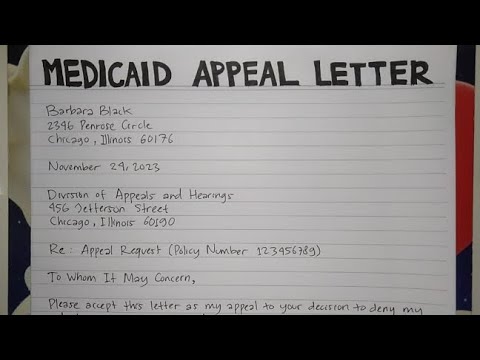 MEDICAID APPEAL LETTER
Barbara Black
2346 Penrose Circle
Chicago, Illinois 60176
November 24, 2023
Division of Appeals and Hearings
456 Jefferson Street
Chicago, Illinois 60190
Re: Appeal Request (Policy Number 123456789)
To Whom It May Concern,
Please accept this letter as my appeal to your decision to deny my